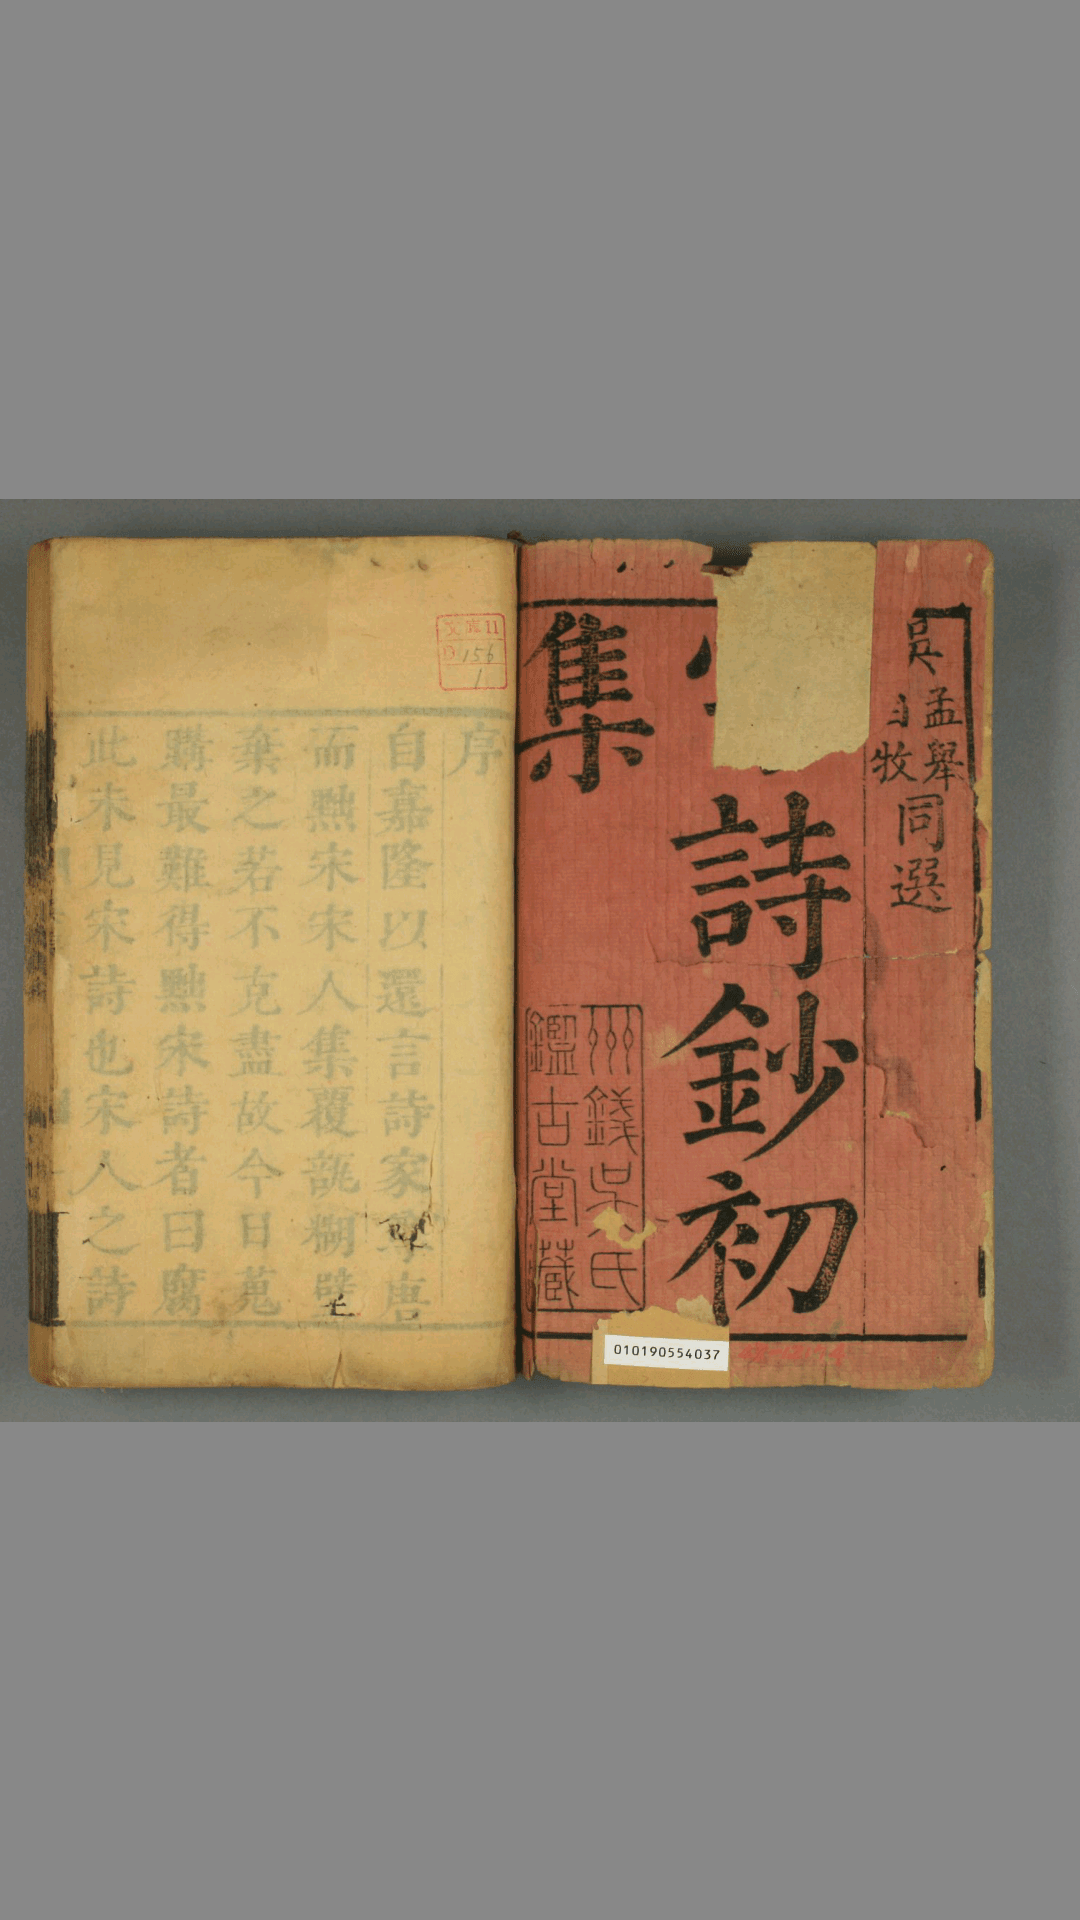 吳孟舉
自牧
同選
詩鈔初
集
州錢吳氏
鑑古堂藏
010190554037
文庫11
D156
1
序
自嘉隆以還言詩家尊唐
而黜宋宋人集覆瓿糊壁
棄之若不克盡故今日蒐
購最難得黜宋詩者曰腐
此未見宋詩也宋人之詩